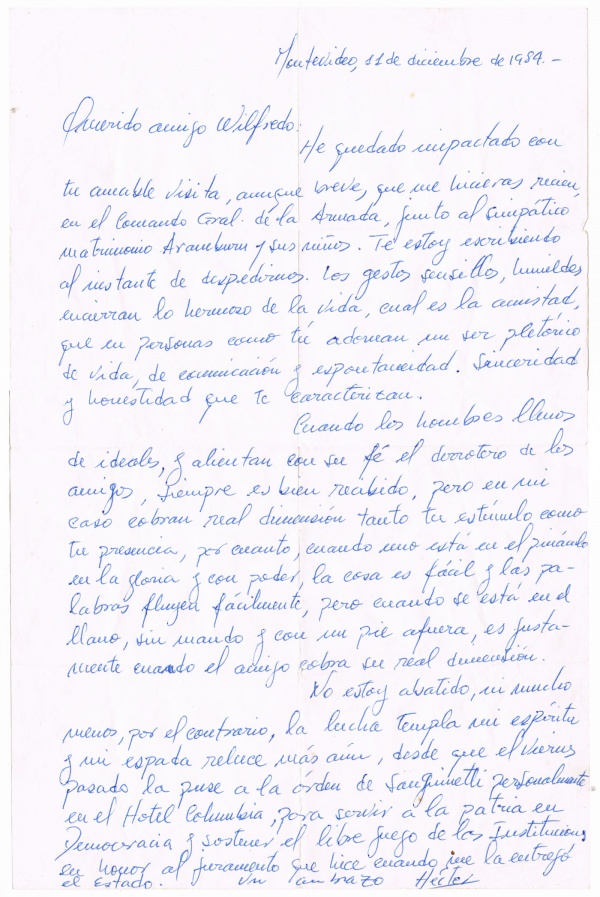 Montevideo, 11 de diciembre de 1984.-
Querido amigo Wilfredo:
He quedado impactado con
tu amable visita, aunque breve, que me hicieras recien,
en el Comando Gral. de la Armada, junto al simpático
matrimonio Aramburu y sus niños. Te estoy escribiendo
al instante de despedirnos. Los gestos sensillos, humildes
encierran lo hermoso de la vida, cual es la amistad,
que en personas como tú adornan un ser pletórico
de vida, de comunicación y espontaneidad. Sinceridad
y honestidad que te caracterizan.
Cuando los hombres llenos
de ideales, y alientan con su fé el derrotero de los
amigos, siempre es bien recibido, pero en mi
caso cobran real dimensión tanto tu estímulo como
tu presencia, por cuanto, cuando uno está en el pináculo
en la gloria y con poder, la cosa es fácil y las pa-
labras fluyen fácilmente, pero cuando se está en el
llano, sin mando y con un pie afuera, es justa-
mente cuando el amigo cobra su real dimensión.
No estoy abatido, ni mucho
menos, por el contrario, la lucha templa mi espíritu
y mi espada reluce más aún, desde que el viernes
pasado la puse a la órden de Sanguinetti personalmente
en el Hotel Columbia, para servir a la patria en
Democracia y sostener el libre juego de las Instituciones
en honor al juramento que hice cuando me la entregó
el Estado. Un abrazo Héctor